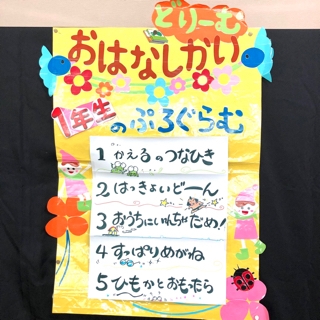 どりーむ
おはなしかい
1年生
のぷろぐらむ
1 かえるのつなひき
2 はっきょいどーん
3 おうちにいれちゃだめ!
4 すっぱりめがね
5 ひもかとおもったら